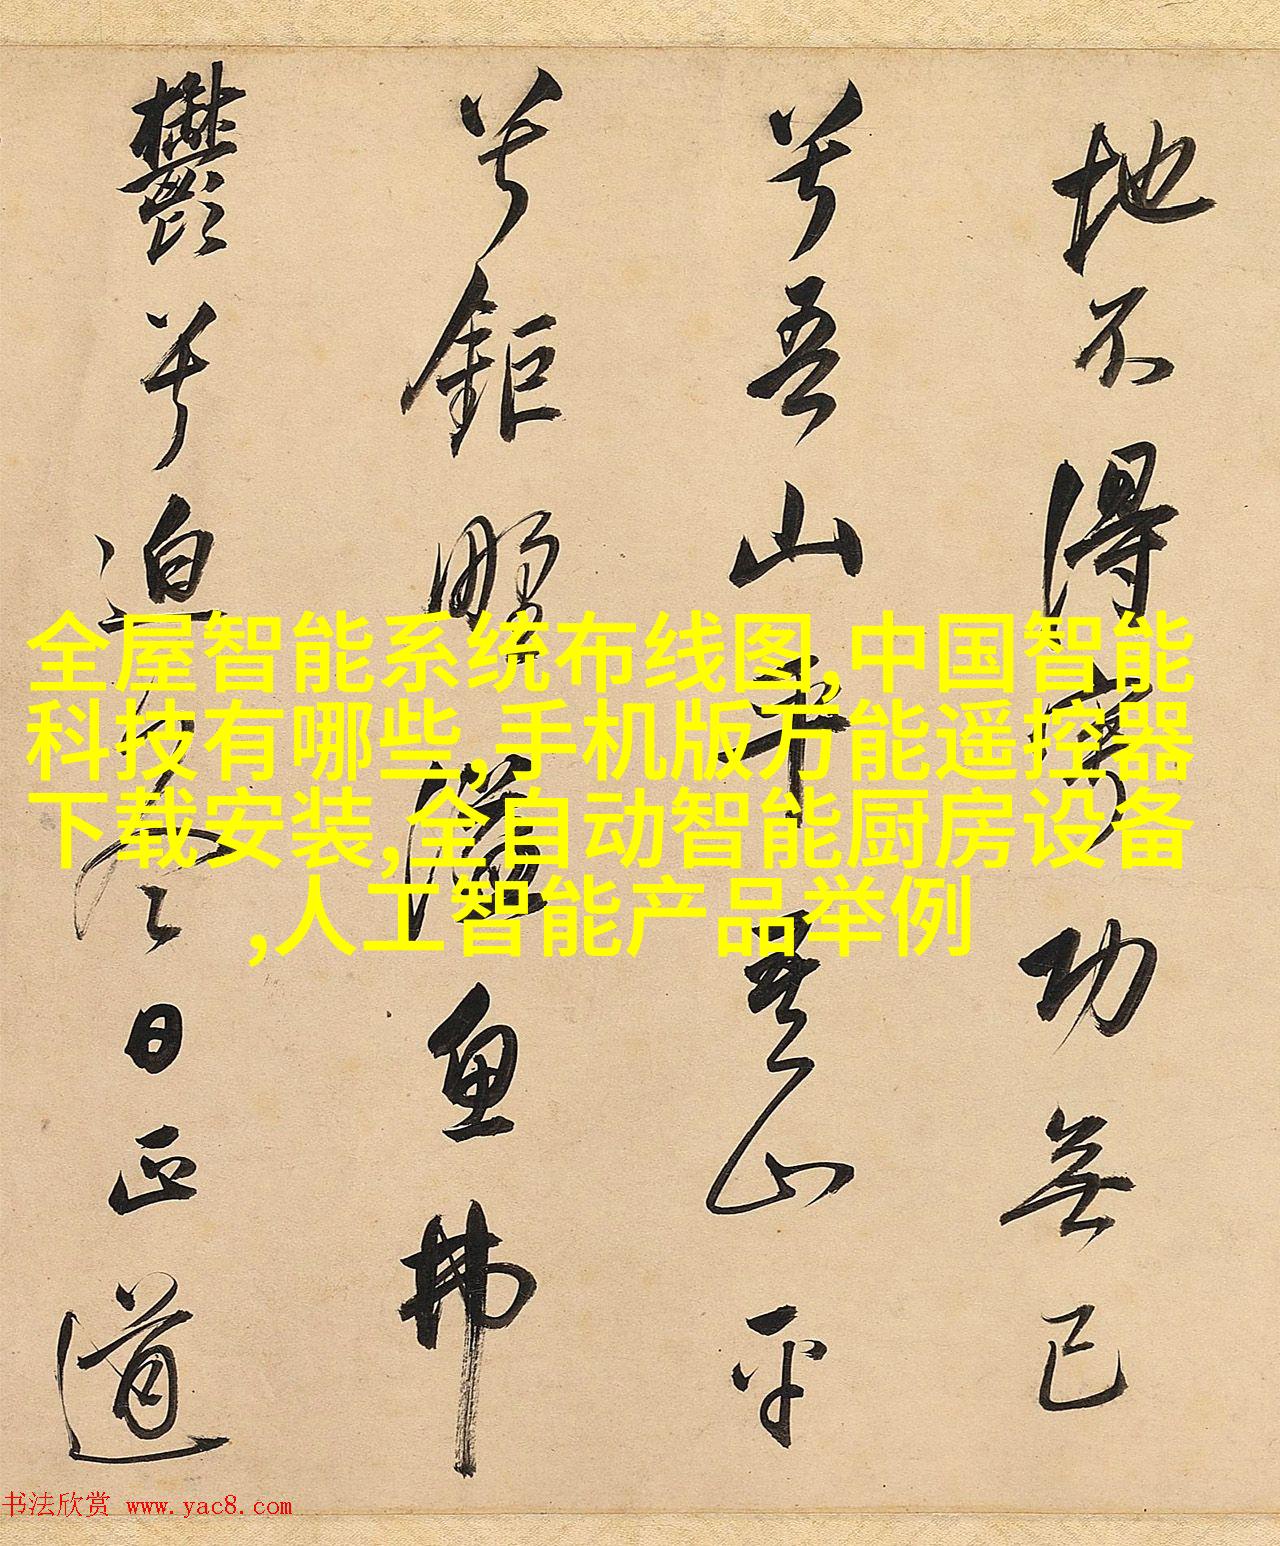 地不得寧功無已
兮吾山平吾山平
兮鉅野溢魚拂
鬱兮迫冬日正道
全屋智能系统布线图,中国智能
科技有哪些,手机版万能遥控器
下载安装,全自动智能厨房设备
,人工智能产品举例
书法欣赏 www.yac8.com